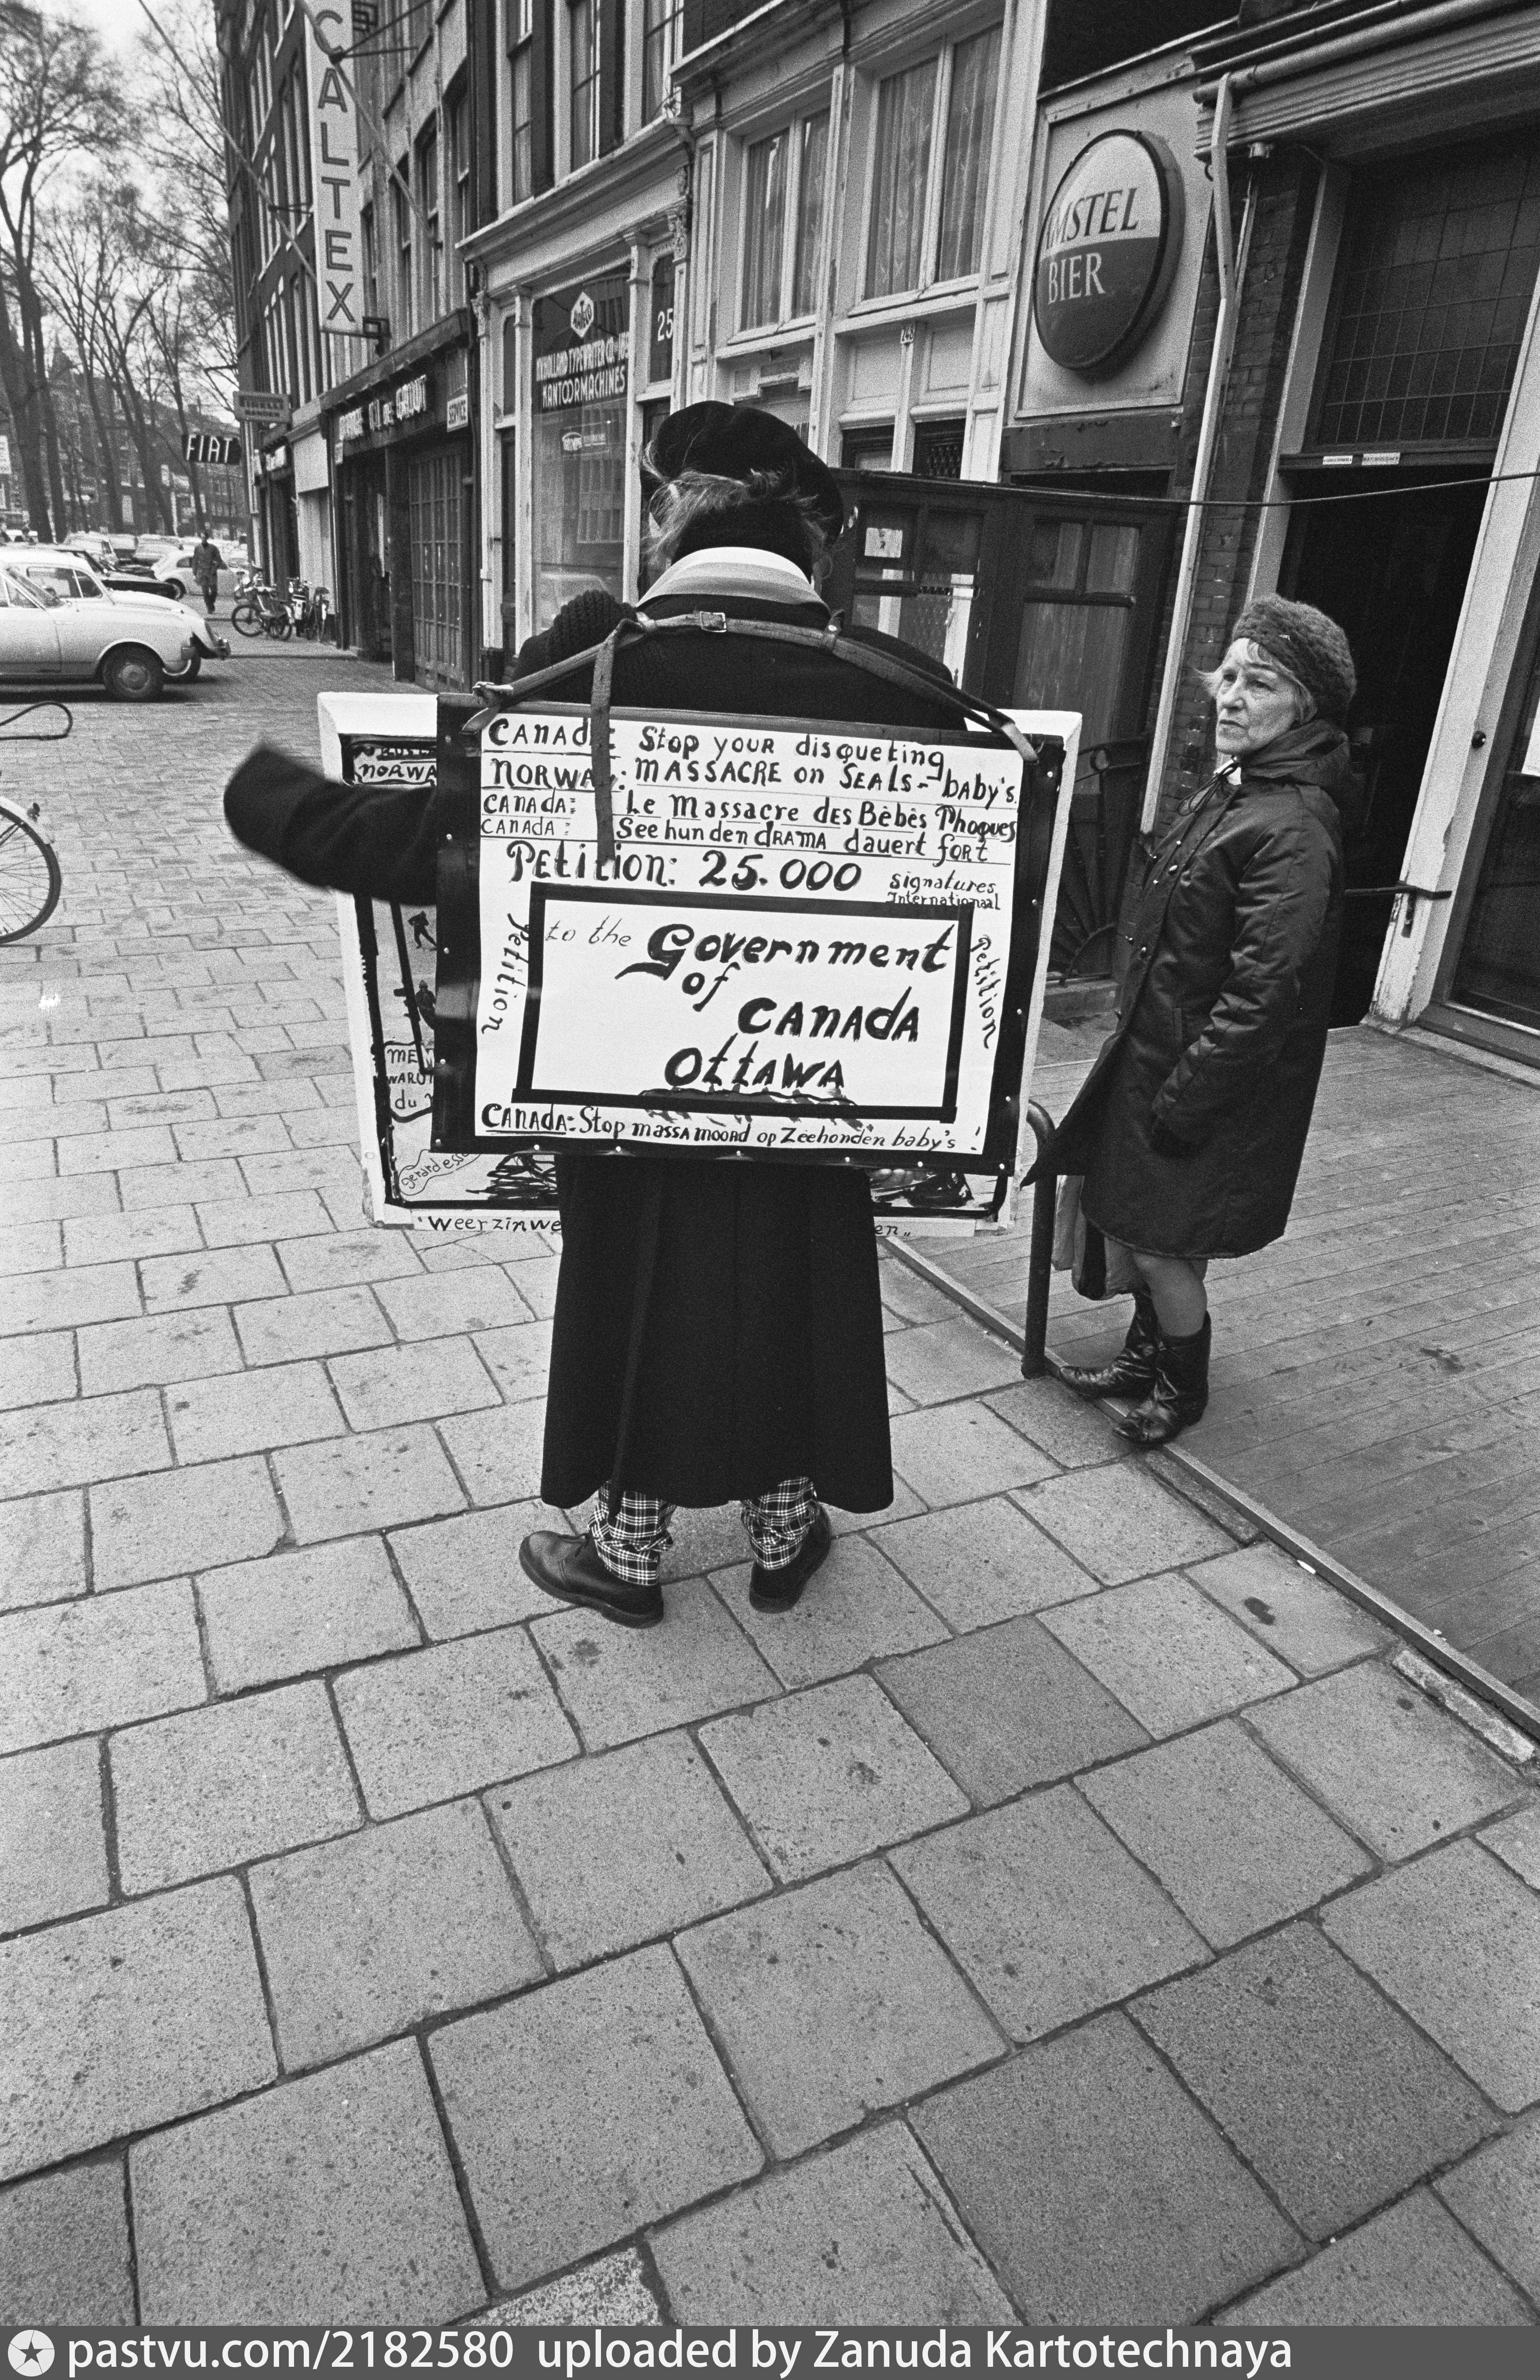 CALTEX
AMSTEL
BIER
25
HOLLAND TYPEWRITER
KANTOORMACHINES
243
SERVICE
PIRELLI
BANDEN
FIAT
CANADA: Stop YOUR disqueting
NORWAY: MASSACRE on SEALS-baby's.
CANADA: Le Massacre des Bébès Phoques
CANADA: Seehunden DRAMA dauert fort
Petition: 25.000 signatures
Internationaal
Petition
to the Government
of
CANADA
OTTAWA
Petition
CANADA: Stop massa moord op Zeehonden baby's!
NORWA
du
gerard
"Weerzinwe
en"
pastvu.com/2182580 uploaded by Zanuda Kartotechnaya